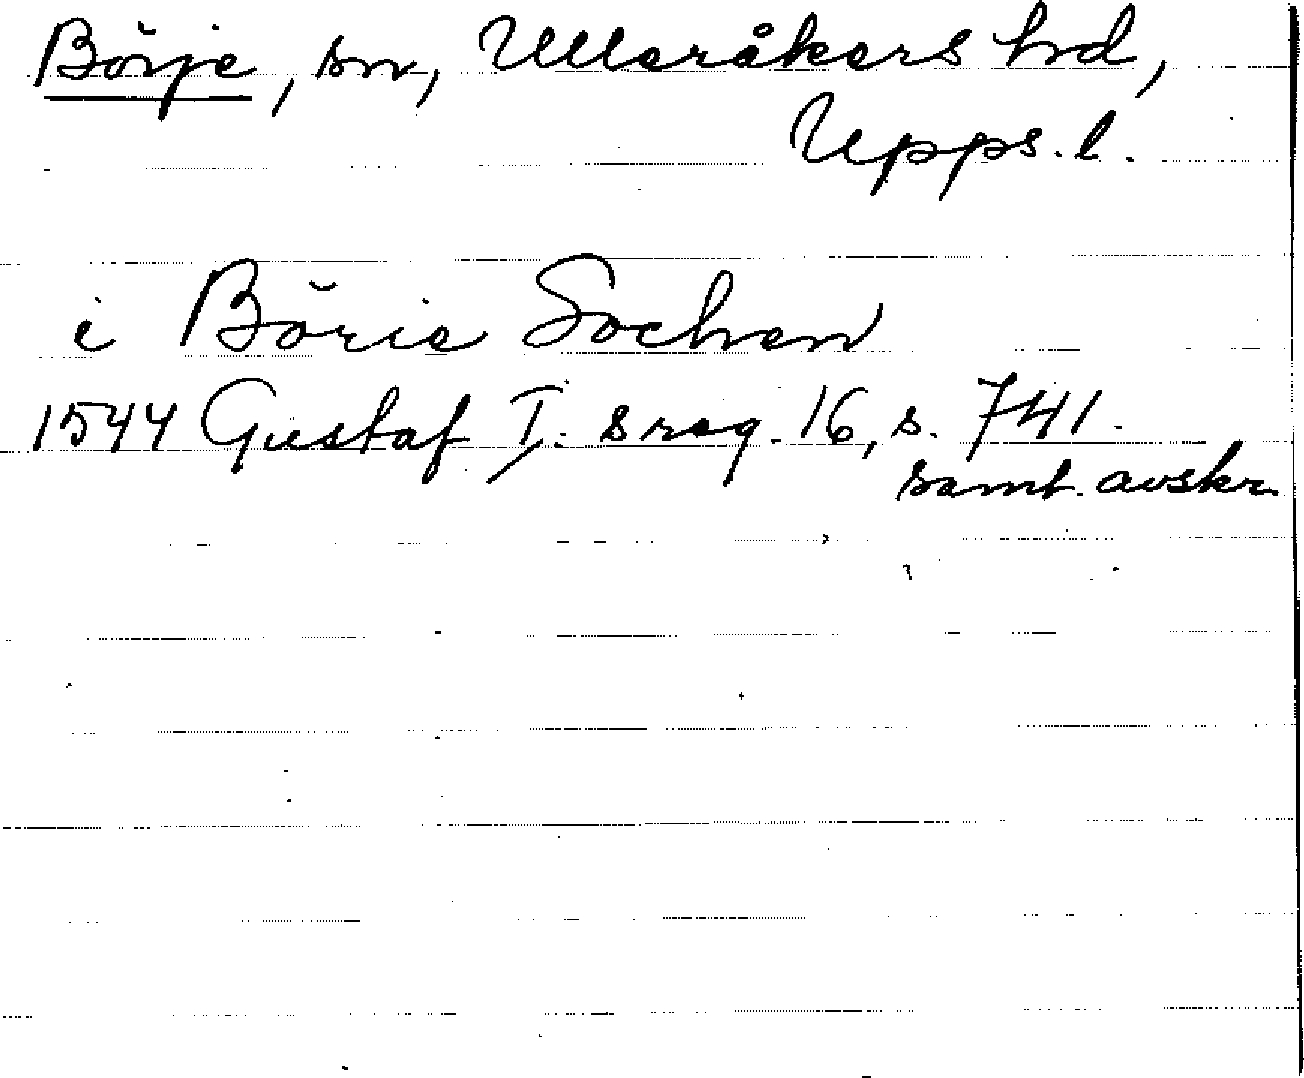 Börje, sn, Ulleråkers hd,
Upps. l.
i Börie Sochen
1544 Gustaf I. s reg. 16, s. 741.
samt. avskr.